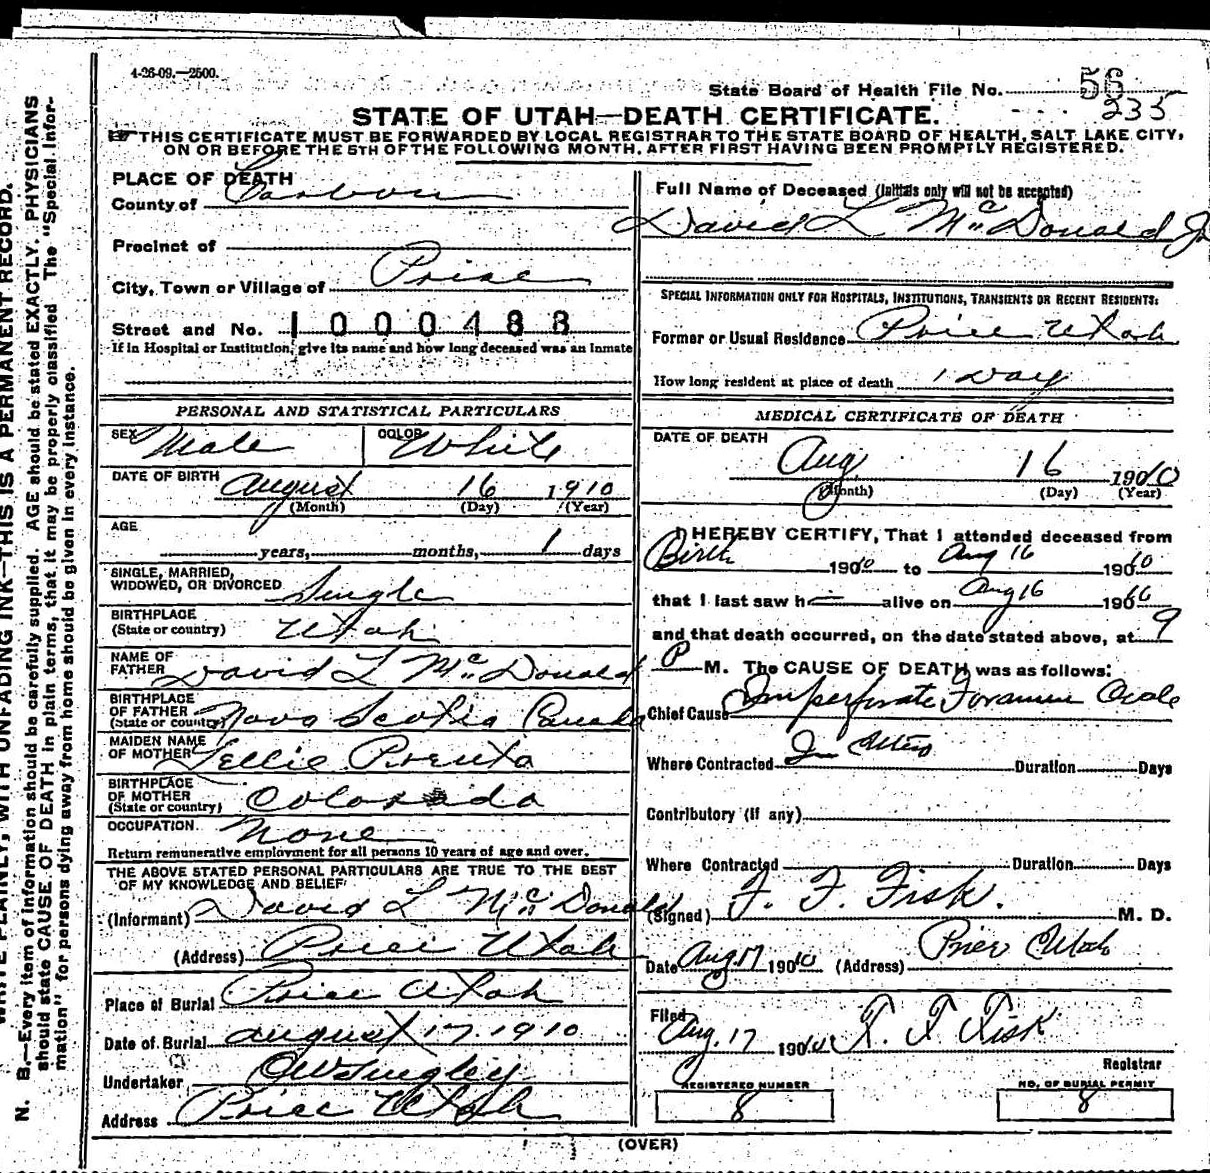 4-26-09.—2500.
State Board of Health File No. 56
235
STATE OF UTAH—DEATH CERTIFICATE.
THIS CERTIFICATE MUST BE FORWARDED BY LOCAL REGISTRAR TO THE STATE BOARD OF HEALTH, SALT LAKE CITY,
ON OR BEFORE THE 5TH OF THE FOLLOWING MONTH. AFTER FIRST HAVING BEEN PROMPTLY REGISTERED.
PLACE OF DEATH
County of Carbon
Precinct of
City, Town or Village of Price
Street and No. 1000488
If in Hospital or Institution, give its name and how long deceased was an Inmate
PERSONAL AND STATISTICAL PARTICULARS
SEX Male COLOR White
DATE OF BIRTH August 16 1910
(Month) (Day) (Year)
AGE
years, months, 1 days
SINGLE, MARRIED,
WIDOWED, OR DIVORCED Single
BIRTHPLACE
(State or country) Utah
NAME OF
FATHER David L McDonald
BIRTHPLACE
OF FATHER
(State or country) Nova Scotia Canada
MAIDEN NAME
OF MOTHER
BIRTHPLACE
OF MOTHER
(State or country) Colorado
OCCUPATION None
Return remunerative employment for all persons 10 years of age and over.
THE ABOVE STATED PERSONAL PARTICULARS ARE TRUE TO THE BEST
OF MY KNOWLEDGE AND BELIEF
(Informant) David L McDonald
(Address) Price Utah
Place of Burial Price Utah
Date of Burial August 17. 1910
Undertaker
Address Price Utah
Full Name of Deceased (Initials only will not be accepted)
David L McDonald Jr
SPECIAL INFORMATION ONLY FOR HOSPITALS, INSTITUTIONS, TRANSIENTS OR RECENT RESIDENTS:
Former or Usual Residence Price Utah
How long resident at place of death 1 Day
MEDICAL CERTIFICATE OF DEATH
DATE OF DEATH
Aug 16 1910
(Month) (Day) (Year)
I HEREBY CERTIFY, That I attended deceased from
Birth 190 10 to Aug 16 190 10
that I last saw h alive on Aug 16 190 10
and that death occurred, on the date stated above, at 9
P M. The CAUSE OF DEATH was as follows:
Chief Cause Imperforate Foramen Ovale
Where Contracted In Utero Duration Days
Contributory (if any)
Where Contracted Duration Days
(Signed) F. F. Fisk. M. D.
Date Aug 17 190 10 (Address) Price Utah
Filed
Aug. 17 190 10 F. F. Fisk
Registrar
REGISTERED NUMBER
8
NO. OF BURIAL PERMIT
8
(OVER)
WRITE PLAINLY, WITH UNFADING INK—THIS IS A PERMANENT RECORD.
N. B.—Every item of information should be carefully supplied. AGE should be stated EXACTLY. PHYSICIANS
should state CAUSE OF DEATH in plain terms, that it may be properly classified. The "Special Infor-
mation" for persons dying away from home should be given in every instance.